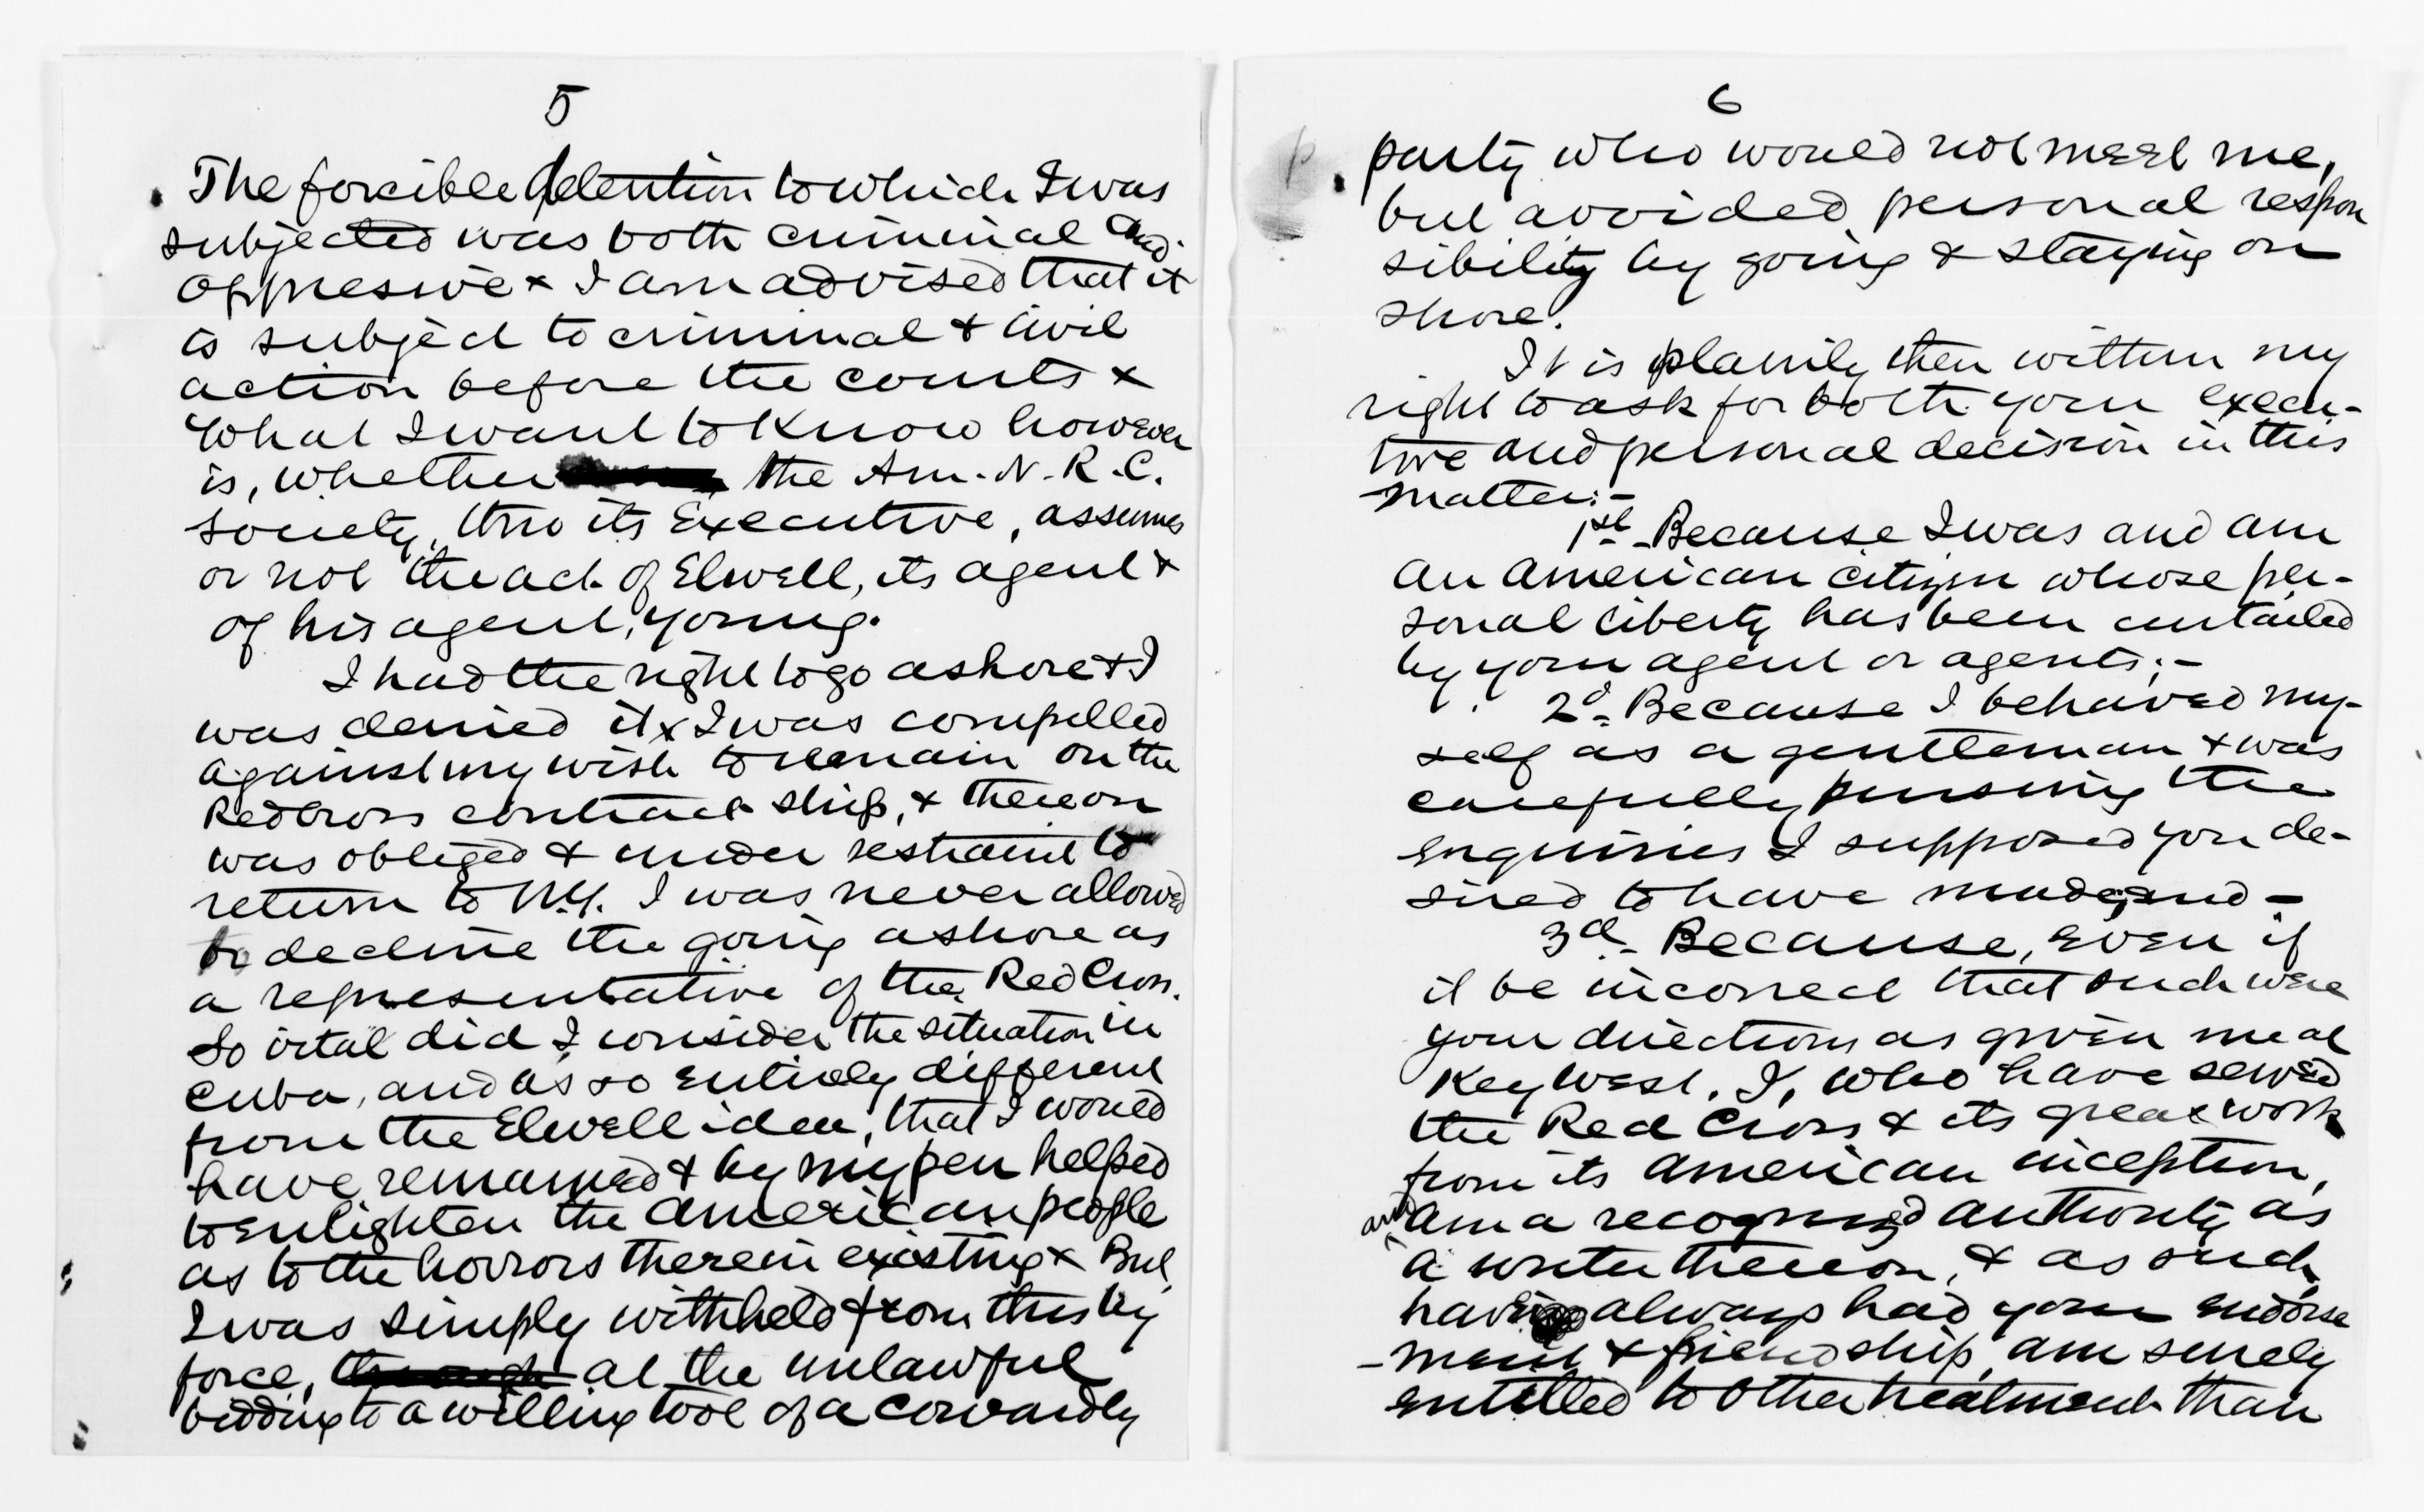 5
The forcible detention to which I was
subjected was both criminal and
oppressive x I am advised that it
is subject to criminal & civil
action before the courts x
What I want to know however
is, whether the Am. N. R. C.
Society, thro its Executive, assumes
or not the act of Elwell, its agent &
of his agent, Young.
I had the right to go ashore & I
was denied it x I was compelled
against my wish to remain on the
Red Cross contract ship, & thereon
was obliged & under restraint to
return to N.Y. I was never allowed
to decline the going ashore as
a representative of the Red Cross.
So vital did I consider the situation in
Cuba, and as so entirely different
from the Elwell idea, that I would
have remained & by my pen helped
to enlighten the American people
as to the horrors therein existing x But
I was simply withheld from this by
force, at the unlawful
bidding to a willing tool of a cowardly
6
party who would not meet me,
but avoided personal respon
sibility by going & staying on
shore.
It is plainly then within my
right to ask for both your execu-
tive and personal decision in this
matter:-
1st - Because I was and am
an American citizen whose per-
sonal liberty has been curtailed
by your agent or agents;-
2d - Because I behaved my-
self as a gentleman & was
carefully pursuing the
enquiries I supposed you de-
sired to have made; and -
3d - Because, even if
it be incorrect that such were
your directions as given me at
Key West, I, who have served
the Red Cross & its great work
from its American inception,
and am a recognized authority as
a writer thereon, & as such
having always had your endorse
-ment & friendship, am surely
entitled to other treatment than